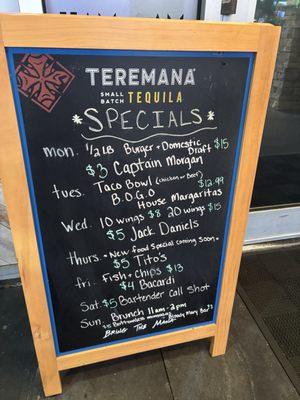 TEREMANA
SMALL BATCH TEQUILA
* SPECIALS *
mon. 1/2 LB Burger + Domestic Draft $15
$3 Captain Morgan
Tues. Taco Bowl (chicken or Beef) $12.99
B.O.G.O House Margaritas
Wed. 10 wings $8 20 wings $15
$5 Jack Daniels
Thurs. * New food Special Coming Soon *
$5 Tito's
fri. Fish + Chips $13
$4 Bacardi
Sat. $5 Bartender Call Shot
Sun. Brunch 11am - 2pm
Bottomless mimosas Bloody Mary Bar
BRING THE MANA